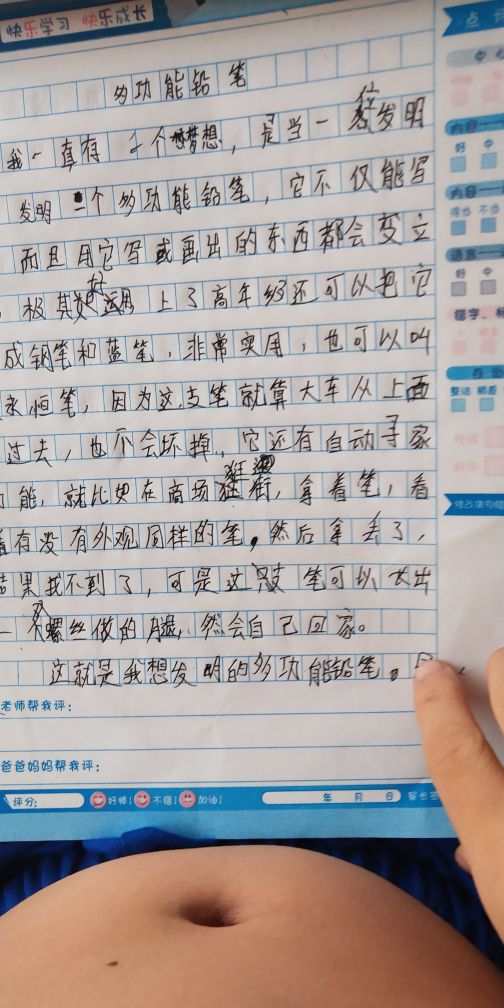 快乐学习 快乐成长
多功能铅笔
我一直有一个梦想,是当一位发明
发明一个多功能铅笔,它不仅能写
而且用它写或画出的东西都会变立
,极其好用 上了高年级还可以把它
成钢笔和蓝笔,非常实用,也可以叫
永恒笔,因为这支笔就算大车从上面
过去,也不会坏掉,它还有自动寻家
功能,就比如在商场逛街,拿着笔,看
看有没有外观同样的笔。然后拿丢了,
结果找不到了,可是这支笔可以长出
一 螺丝做的腿,然会自己回家。
这就是我想发明的多功能铅笔。
老师帮我评:
爸爸妈妈帮我评:
评分: 好棒! 不错! 加油! 年 月 日
内容
好 中
内容
得当 不当
语言
好 中
错字、
整洁